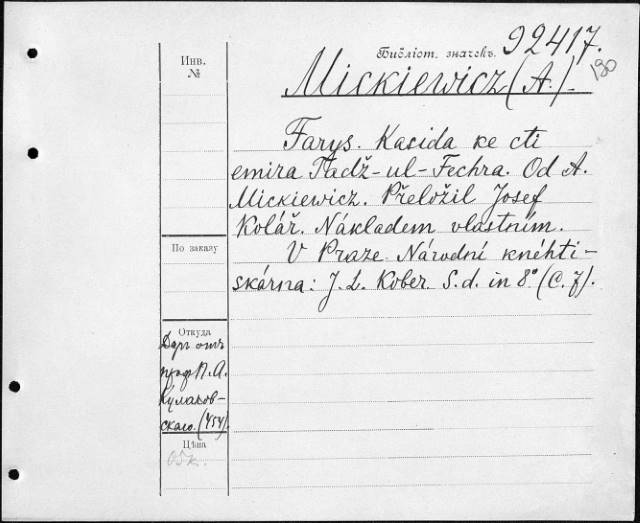 Библіот. значекъ. 92417.
190
Инв.
№
Mickiewicz (A.).
Farys. Kasida ke cti
emira Tadž-ul-Fechra. Od A.
Mickiewicz. Přeložil Josef
Kolář. Nákladem vlastním.
V Praze. Národní knéhti-
skárna: J. L. Kober. S. d. in 8° (C. J).
По заказу
Откуда
Даръ отъ
проф. П. А.
Кулаков-
скаго. (454).
Цѣна
05к.